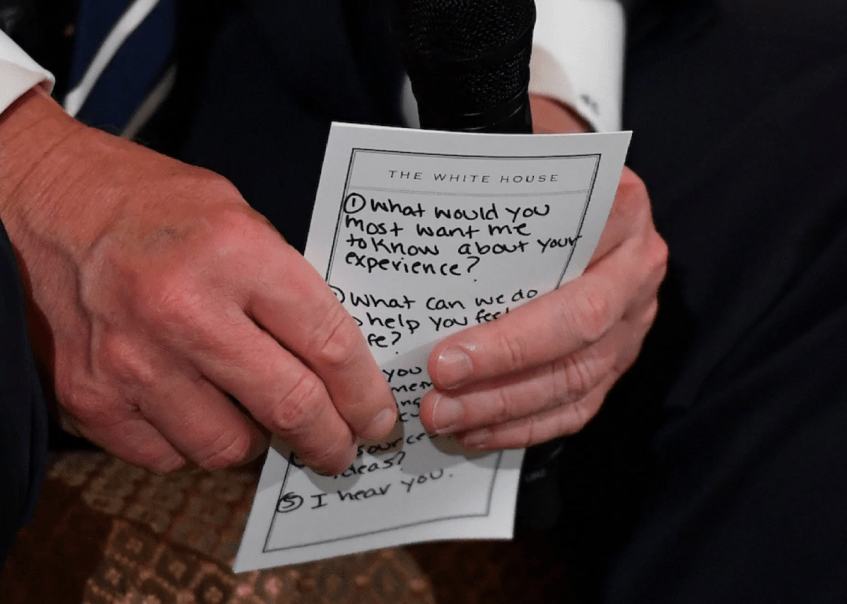 THE WHITE HOUSE
① What would you
most want me
to Know about your
experience?
What can we do
help you
fe?
you
ideas?
⑤ I hear you.